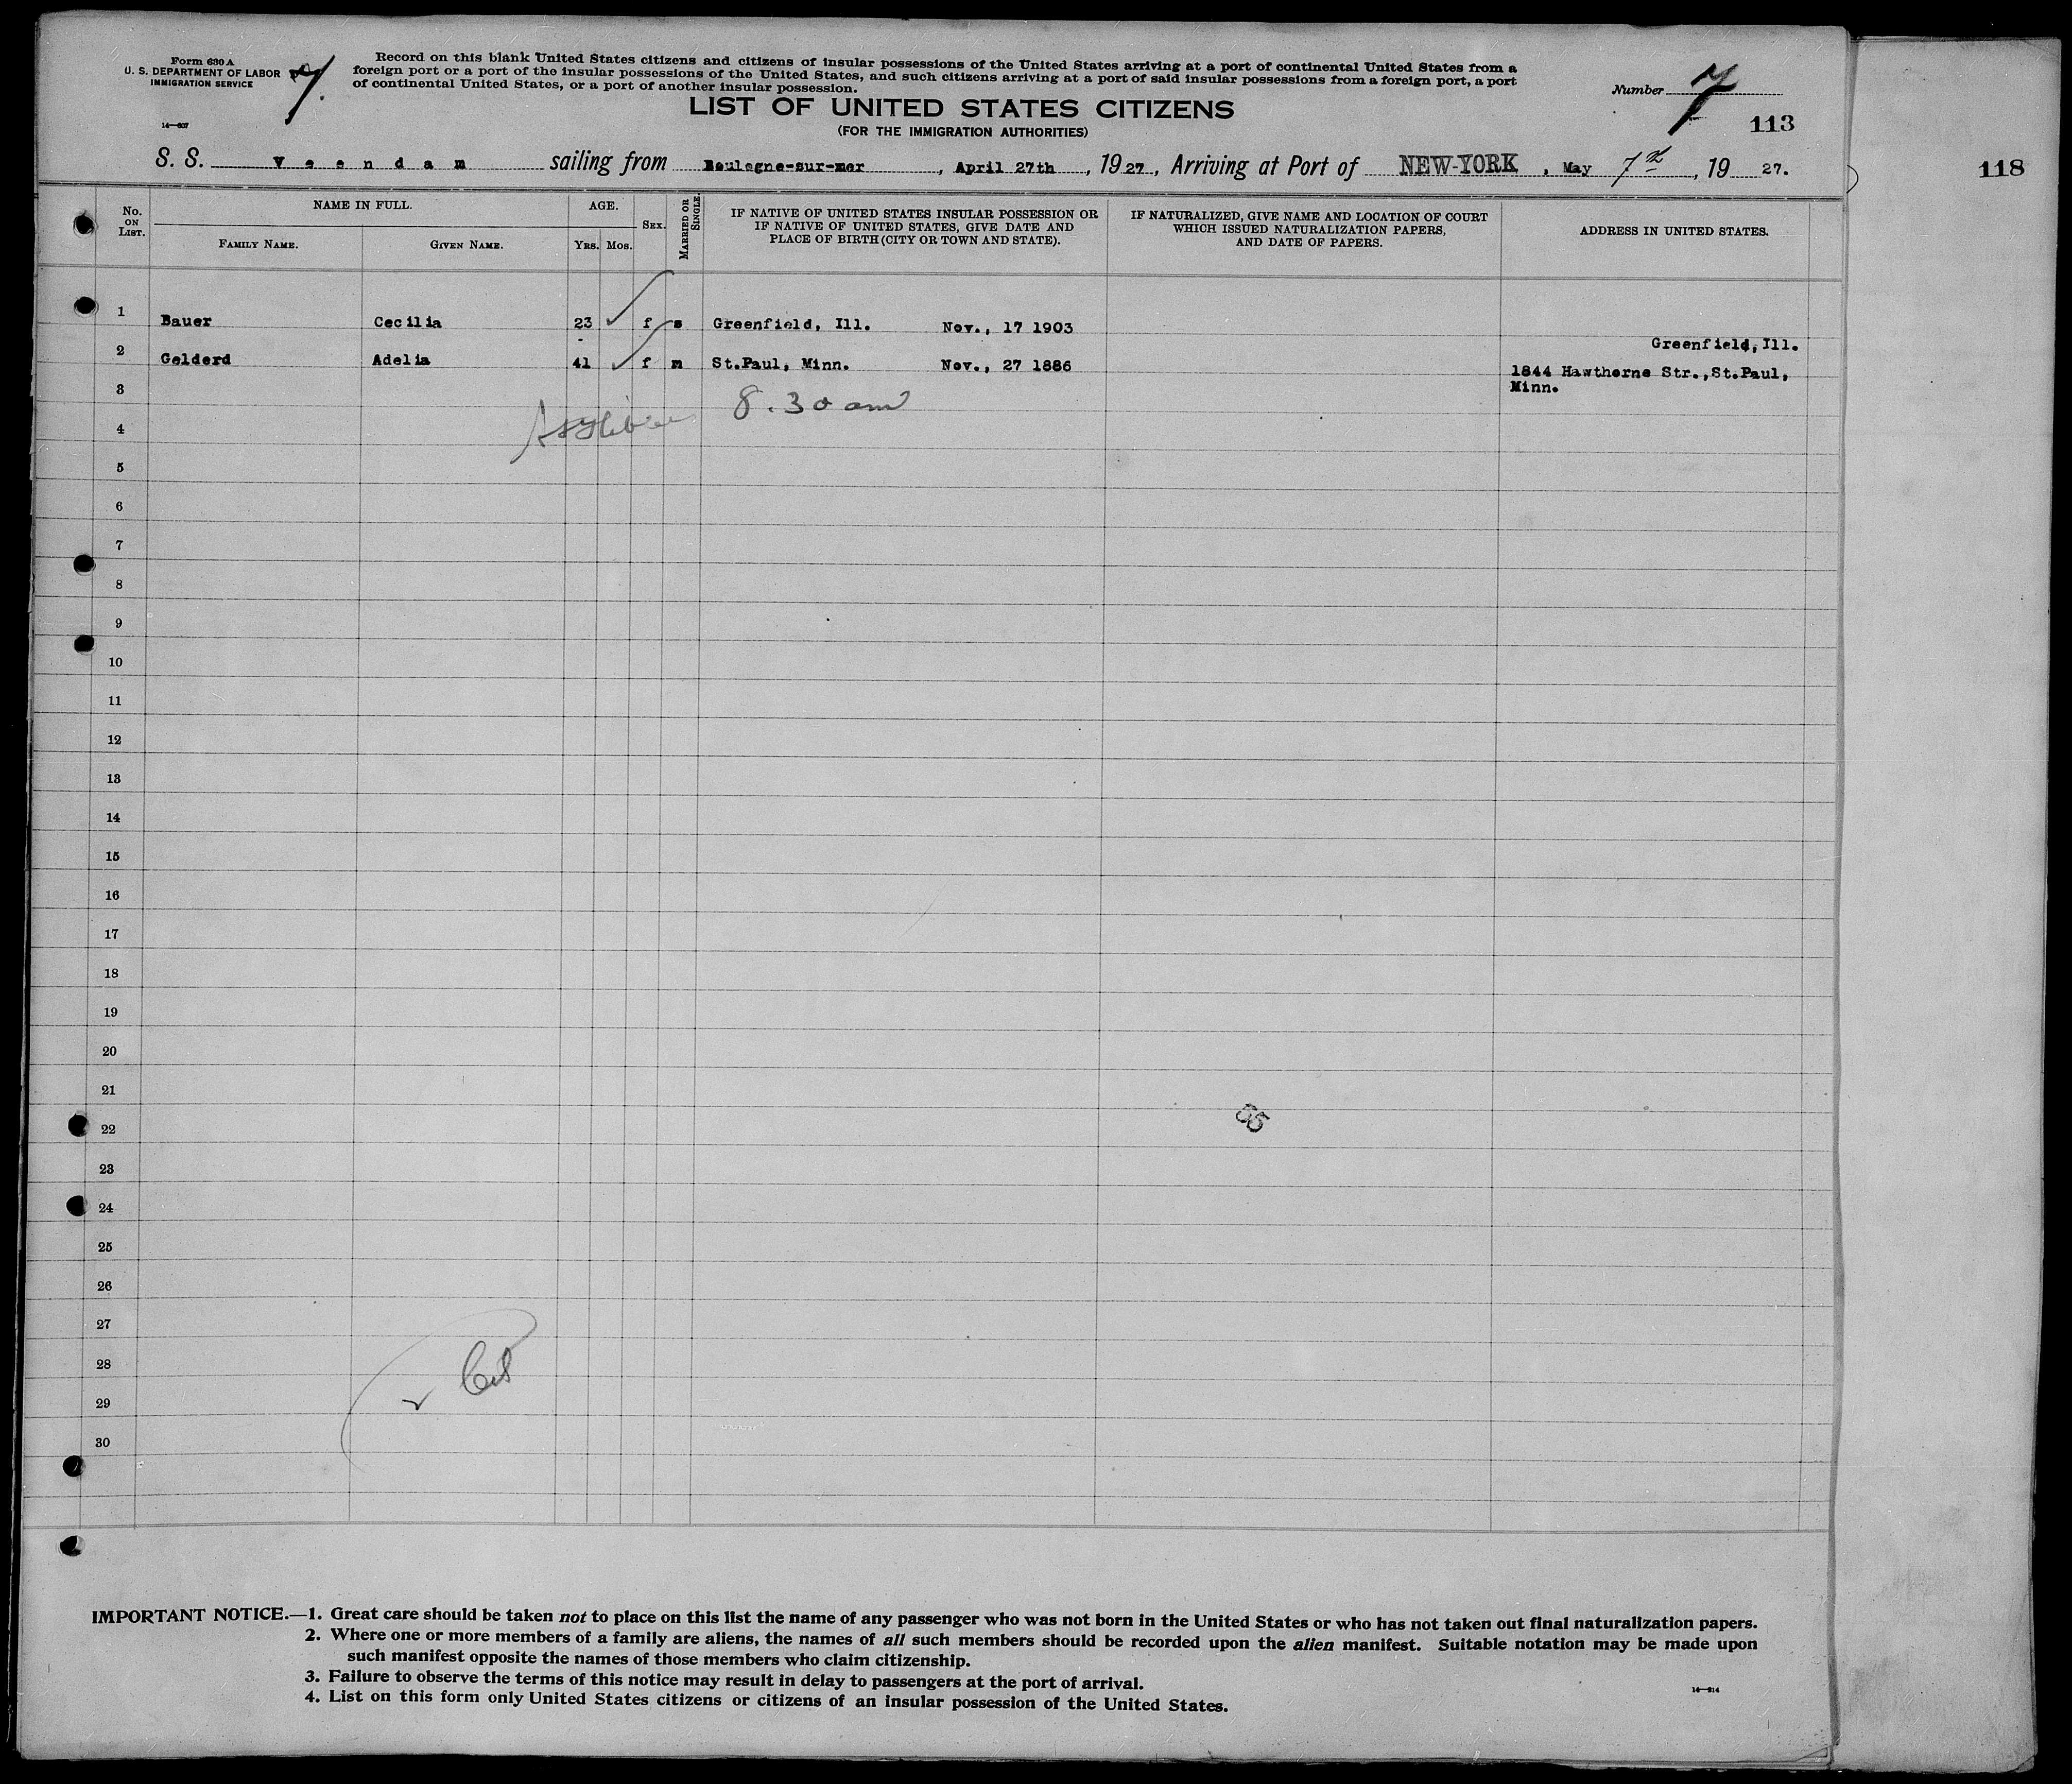 Form 630 A
U. S. DEPARTMENT OF LABOR
IMMIGRATION SERVICE
14—607
7.
Record on this blank United States citizens and citizens of insular possessions of the United States arriving at a port of continental United States from a
foreign port or a port of the insular possessions of the United States, and such citizens arriving at a port of said insular possessions from a foreign port, a port
of continental United States, or a port of another insular possession.
Number 7
LIST OF UNITED STATES CITIZENS
(FOR THE IMMIGRATION AUTHORITIES)
113
118
S. S. Veendam sailing from Boulogne-sur-mer, April 27th, 1927, Arriving at Port of NEW-YORK, May 7th, 1927.
No. ON LIST.
NAME IN FULL.
FAMILY NAME. GIVEN NAME.
AGE.
YRS. MOS.
SEX.
MARRIED OR SINGLE.
IF NATIVE OF UNITED STATES INSULAR POSSESSION OR
IF NATIVE OF UNITED STATES, GIVE DATE AND
PLACE OF BIRTH (CITY OR TOWN AND STATE).
IF NATURALIZED, GIVE NAME AND LOCATION OF COURT
WHICH ISSUED NATURALIZATION PAPERS,
AND DATE OF PAPERS.
ADDRESS IN UNITED STATES.
1 Bauer Cecilia 23 f s Greenfield, Ill. Nov., 17 1903 Greenfield, Ill.
2 Gelderd Adelia 41 f m St.Paul, Minn. Nov., 27 1886 1844 Hawthorne Str.,St.Paul,
Minn.
3
8.30 am
4
5
6
7
8
9
10
11
12
13
14
15
16
17
18
19
20
21
22
23
24
25
26
27
28
29
30
IMPORTANT NOTICE.—1. Great care should be taken not to place on this list the name of any passenger who was not born in the United States or who has not taken out final naturalization papers.
2. Where one or more members of a family are aliens, the names of all such members should be recorded upon the alien manifest. Suitable notation may be made upon
such manifest opposite the names of those members who claim citizenship.
3. Failure to observe the terms of this notice may result in delay to passengers at the port of arrival.
4. List on this form only United States citizens or citizens of an insular possession of the United States.
14—214